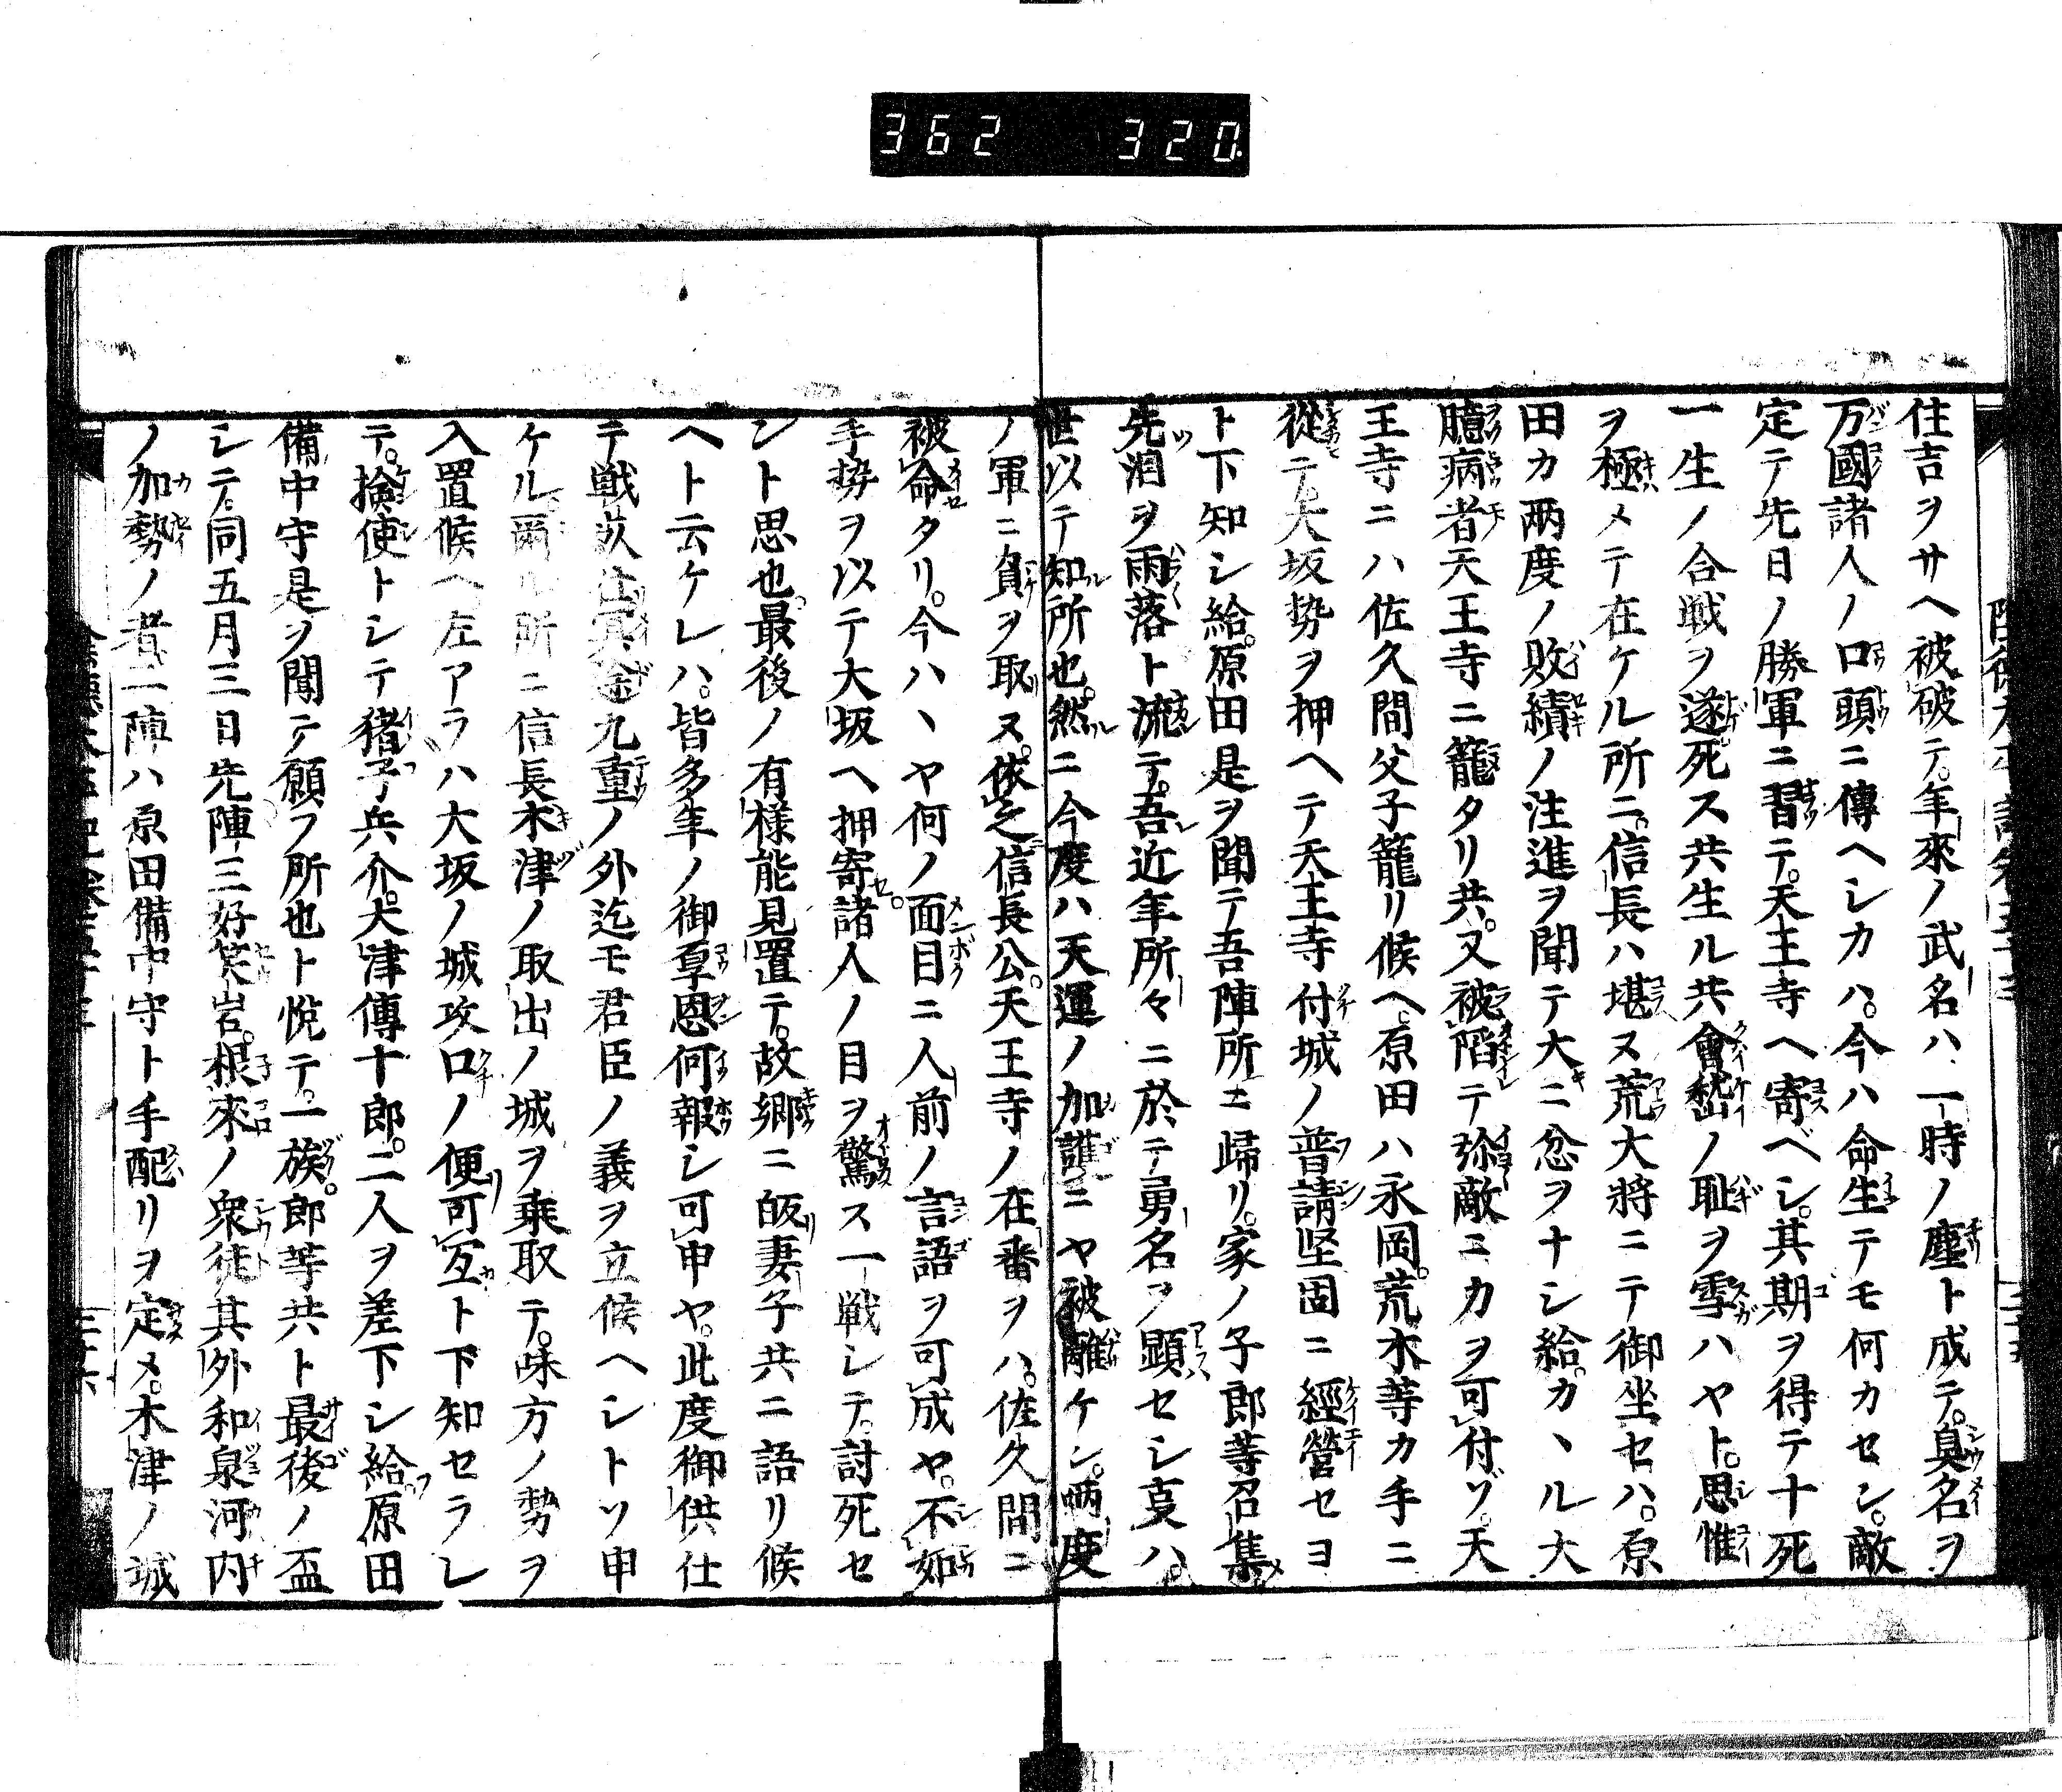 362 320
住吉ヲサヘ被破テ。年來ノ武名ハ一時ノ塵ト成テ。臭名ヲ
万國諸人ノ口頭ニ傳ヘシカハ。今ハ命生テモ何カセン。敵
定テ先日ノ勝軍ニ習テ。天王寺ヘ寄ベシ。其期ヲ得テ十死
一生ノ合戦ヲ遂死ス共生ル共會嵆ノ恥ヲ雪ハヤト。思惟
ヲ極メテ在ケル所ニ。信長ハ堪ヌ荒大將ニテ御坐セハ。原
田カ兩度ノ敗績ノ注進ヲ聞テ大ニ忿ヲナシ給。カヽル大
臆病者天王寺ニ籠タリ共。又被陷テ弥敵ニカヲ可付ゾ。天
王寺ニハ佐久間父子籠リ候ヘ。原田ハ永岡。荒木等カ手ニ
從テ。大坂勢ヲ押ヘテ天王寺付城ノ普請堅固ニ經營セヨ
ト下知シ給。原田是ヲ聞テ吾陣所ニ歸リ。家ノ子郎等召集メ
先泪ヲ雨落ト流テ。吾近年所々ニ於テ勇名ヲ顕セシ叓ハ。
世以テ知所也。然ニ今度ハ天運ノ加護ニヤ被離ケン。兩度
ノ軍ニ負ヲ取ヌ。依之信長公。天王寺ノ在番ヲハ。佐久間ニ
被命タリ。今ハヽヤ何ノ面目ニ人前ノ言語ヲ可成ヤ。不如
手勢ヲ以テ大坂ヘ押寄セ。諸人ノ目ヲ驚ス一戦シテ。討死セ
ント思也。最後ノ有様能見置テ。故郷ニ皈リ妻子共ニ語リ候
ヘト云ケレハ。皆多年ノ御厚恩何報シ可申ヤ。此度御供仕
テ戦 九重ノ外迄モ君臣ノ義ヲ立候ヘシトソ申
ケル。爾ル所ニ信長木津ノ取出ノ城ヲ乗取テ。味方ノ勢ヲ
入置候ヘ左アラハ大坂ノ城攻口ノ便リ可互ト下知セラレ
テ。撿使トシテ猪子兵介。大津傳十郎。二人ヲ差下シ給フ原田
備中守是ヲ聞テ願フ所也ト悦テ。一族。郎等共ト最後ノ盃
シテ。同五月三日先陣三好笑岩。根來ノ衆徒其外和泉河内
ノ加勢ノ者二陣ハ原田備中守ト手配リヲ定メ。木津ノ城